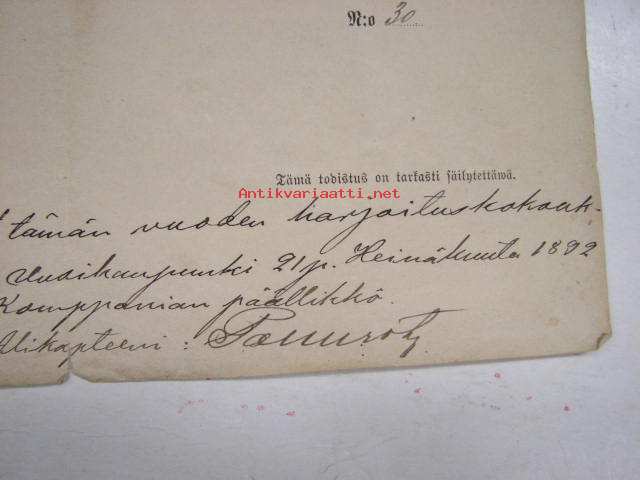 N:o 30
Tämä todistus on tarkasti säilytettäwä.
Antikvariaatti.net
tämän vuoden harjoituskokouk-
Uusikaupunki 21 p. Heinäkuuta 1892
Komppanian päällikkö.
Alikapteeni :